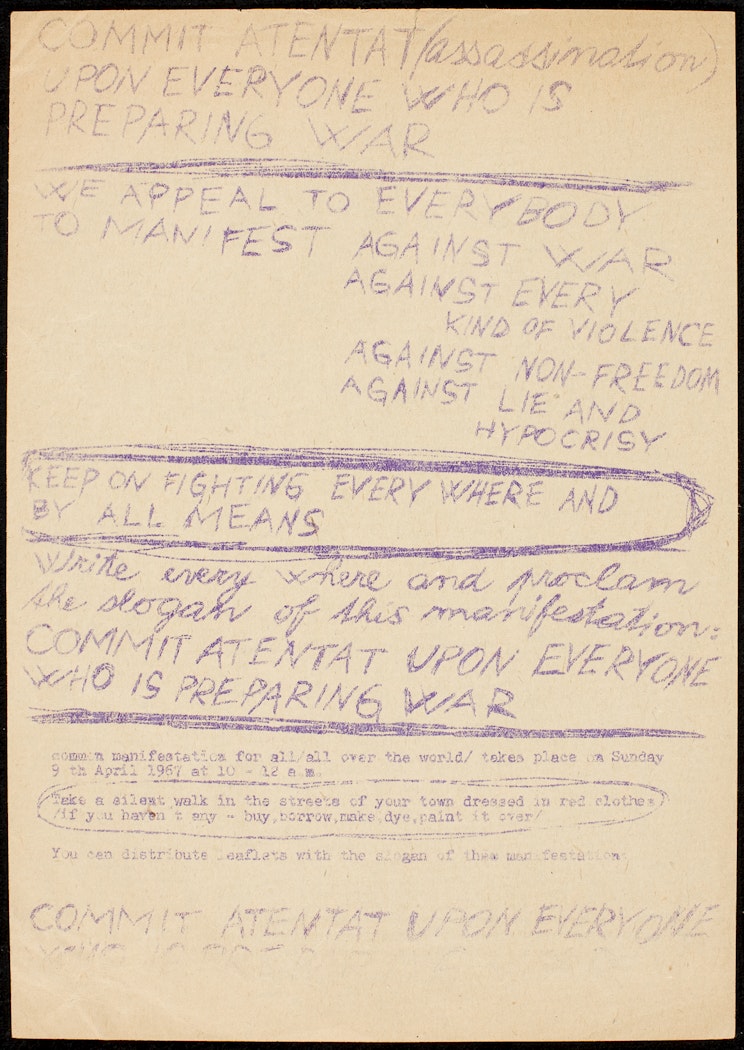 COMMIT ATENTAT (assassination)
UPON EVERYONE WHO IS
PREPARING WAR
WE APPEAL TO EVERYBODY
TO MANIFEST AGAINST WAR
AGAINST EVERY
KIND OF VIOLENCE
AGAINST NON-FREEDOM
AGAINST LIE AND
HYPOCRISY
KEEP ON FIGHTING EVERY WHERE AND
BY ALL MEANS
write every where and proclam
the slogan of this manifestation:
COMMIT ATENTAT UPON EVERYONE
WHO IS PREPARING WAR
common manifestation for all/all over the world/ takes place on Sunday
9 th April 1967 at 10 - 12 a.m.
Take a silent walk in the streets of your town dressed in red clothes
/if you haven t any - buy,borrow,make,dye,paint it over/
You can distribute leaflets with the slogan of them manifestation:
COMMIT ATENTAT UPON EVERYONE